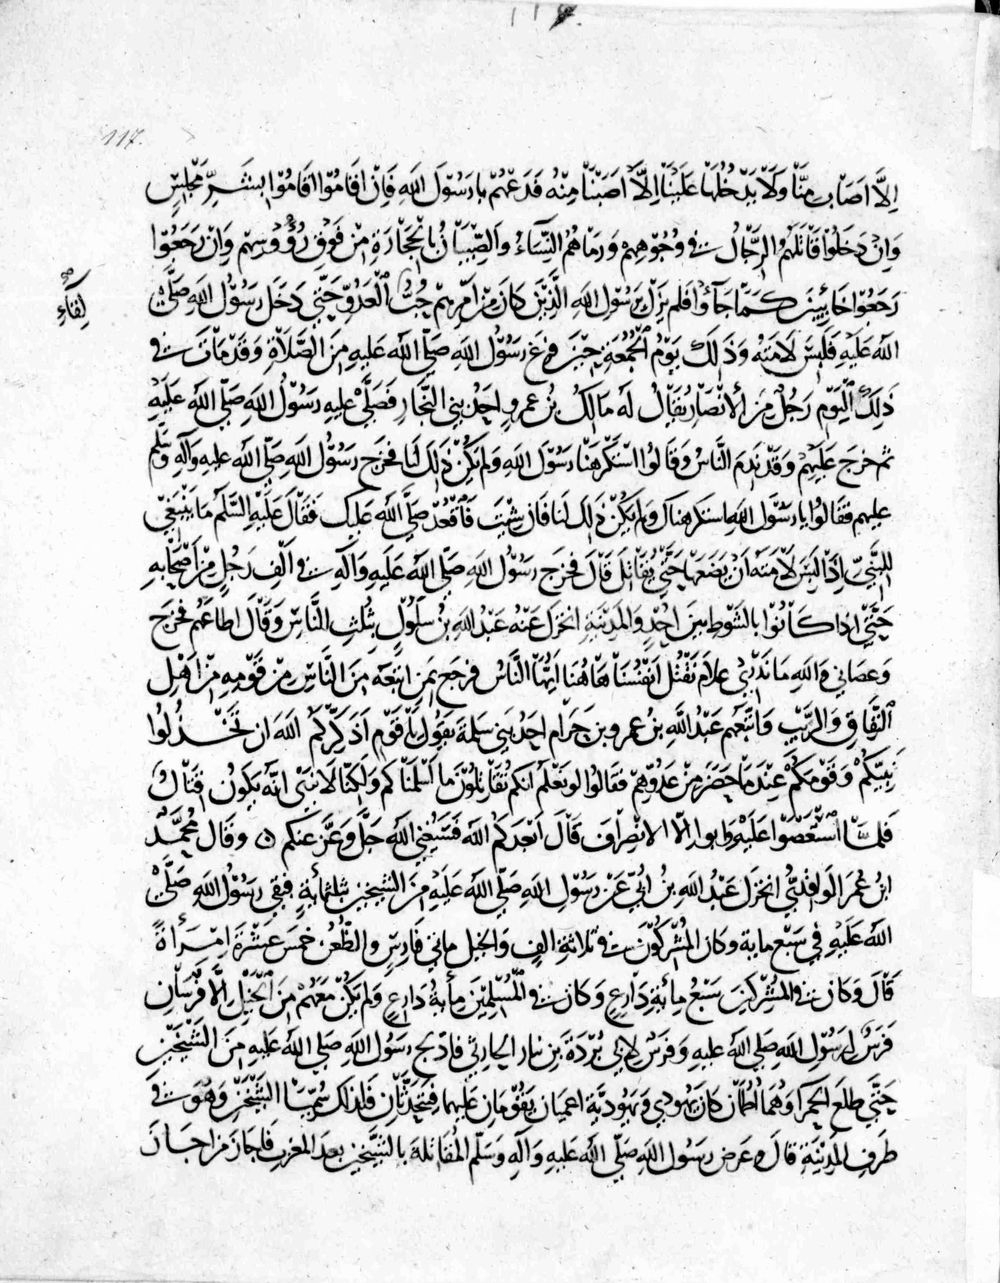 ١١٧
117.
اِلَّا اَصَابَ مِنَّا وَلَا يَدْخُلُهَا عَلَيْنَا اِلَّا اَصَبْنَا مِنْهُ فَدَعْهُمْ يا رَسُوْلَ اللهِ فَاِنْ اَقَامُوْا اقَامُوْا بِشَرِّ مَجْلِسٍ
وَاِنْ دَخَلُوْا قَاتَلَهُمُ الرِّجَالُ فى وُجُوْهِهِمْ وَرَمَاهُمُ النِّسَآءُ وَالصِّبْيَانُ بِالْحِجَارَةِ مِنْ فَوْقِ رُؤُوْسِهِمْ وَاِنْ رَجَعُوْا
رَجَعُوْا خَائِبِيْنَ كَمَا جَآؤُا فَلم يَزَلْ بِرَسُوْلِ اللهِ الَّذِيْنَ كَانَ مِنْ اَمْرِهِمْ حُبُّ الْعَدُوِّ حَتّٰى دَخَلَ رَسُوْلُ اللهِ صَلَّى
لِقَاءِ صح
اللهُ عَلَيْهِ فَلَبِسَ لَامَتَهُ وَذَلِكَ يَوْمُ الْجُمُعَةِ حِيْنَ فَرغَ رَسُوْلُ اللهِ صَلّى اللهُ عَلَيهِ مِنَ الصَّلَاةِ وَقَدْ مَاتَ فى
ذَلِكَ الْيَوْمِ رَجُلٌ مِنَ الْاَنْصَارِ يُقَالُ لَهُ مَالِكُ بْنُ عَمْرٍو اَحَدُ بَنِى النَّجَارِ فَصَلَّى عَلَيهِ رَسُوْلُ اللهِ صَلّى اللهُ عَلَيْهِ
ثم خَرجَ عَلَيْهِمْ وَقَدْ نَدِمَ النَّاسُ وَقَالُوا اسْتَكْرَهْنَا رَسُوْلَ اللهِ وَلَمْ يَكُنْ ذَلِكَ لَنَا فَخَرجَ رَسُوْلُ اللهِ صَلّى اللهُ عَلَيهِ وَآلِهِ وسَلَّم
عليهم فَقَالُوْا يا رَسُوْلَ اللهِ استكرهناك ولم يكُنْ ذَلِكَ لَنَا فَان شِئْتَ فَاقْعُدْ صَلَّى اللهُ عَلَيك فَقَالَ عَلَيْهِ السَّلَم مَا يَنْبَغِى
لِلنَّبِىِّ اِذَا لَبِسَ لَامَتَهُ اَنْ يَضَعَهَا حَتّٰى يُقَاتِلَ قَالَ فَخَرجَ رَسُوْلُ اللهِ صَلّى اللهُ عَلَيهِ وَآلِهِ فى اَلْفِ رَجُلٍ مِنْ اَصْحَابِهِ
حَتّٰى اِذا كَانُوْا بِالشَّوْطِ بين اُحُدٍ وَالمَدِيْنَةِ انْخَزَلَ عَنْهُ عَبْدُ اللهِ بْنُ سَلُوْلٍ بِثُلُثِ النَّاسِ وَقَالَ اطَاعَهُمْ فَخَرَجَ
وَعَصَانِى وَاللهِ مَا نَدْرِى عَلَامَ نَقْتُلُ اَنْفُسَنَا هَاهُنَا اَيُّهَا النَّاسُ فَرجَعَ بِمَنِ اتبعَهُ مِنَ النَّاسِ مِنْ قَوْمِهِ مِنْ اَهْلِ
النِّفَاقِ وَالرَّيْبِ وَاتَّبَعَهُم عَبْدُ اللهِ بْنُ عَمرو بن حَرَامٍ اَحَدُ بَنِى سَلِمَةَ يَقُوْلُ يَا قَوْمِ اُذَكِّرُكُمُ اللهَ ان تَخْذُلُوا
نَبِيَّكُمْ وَقَوْمَكُمْ عِنْدَمَا حَضَرَ مِنْ عَدُوِّهِمْ فَقَالُوا لَو نَعْلَمُ انكم تُقَاتِلُوْنَ ما اَسْلَمْنَاكم وَلكِنَّا لَا نَرَى انَّهُ يَكونُ قِتَالٌ
فَلمَّا اسْتَعْصَوْا عَلَيْهِ وابوا اِلَّا الانْصِرافَ قَالَ اَبْعَدَكُمُ اللهُ فَسَيُغْنِى اللهُ جَلَّ وَعَزَّ عَنكم ۞ وَقَالَ مُحَمَّدُ
ابنُ عُمَرَ الوَاقِدِىُّ انْخَزَلَ عَبْدُ اللهِ بنُ اُبَىٍّ عَنْ رَسُوْلِ اللهِ صَلّى اللهُ عَلَيْهِ مِنَ الشَّيخَيْنِ بثلثمائةٍ فَبَقِى رَسُوْلُ اللهِ صَلَّى
اللهُ عَلَيْهِ فى سَبْعِ مِايةٍ وَكانَ المُشْرِكُوْنَ فى ثلاثةِ الفٍ وَالخَيل مائتى فَارِسٍ وَالظُّعُنُ خَمسَ عَشْرَةَ امْرَاَةً
قَالَ وَكَانَ فى المُشْرِكِينَ سَبْعُ مِائَةِ دَارِعٍ وَكَانَ فى الْمُسْلِمِيْنَ مِأيَةُ دَارِعٍ وَلَم يَكُنْ مَعَهُمْ مِنَ الْخَيْلِ اِلَّا فَرَسَانِ
فَرَسٌ لِرَسُوْلِ اللهِ صَلّى اللهُ عَلَيهِ وَفَرسٌ لِاَبِى بُرْدَةَ بنِ نِيَارِ الحَارِثى فادلج رَسُوْلُ اللهِ صَلى اللهُ عَلَيهِ مِنَ الشَّيْخَيْنِ
حَتّٰى طلعَ الحمرا وَهُمَا اُطُمَانِ كانَ يَهُودِى وَيَهُودِيَّة اعمَيانِ يَقُوْمَانِ عَليهِمَا فَيَتَحَدَّثَانِ فَلِذلك سُمِّيَا الشَّيْخَيْنِ وَهُوَ فى
طَرَفِ المَدِيْنَةِ قَالَ وَعَرَض رَسُوْلُ اللهِ صَلّى اللهُ عَلَيهِ وَآلِهِ وَسَلّم المُقَاتِلَةَ بِالشَّيْخَيْنِ بَعدَ المغرِبِ فَاَجَازَ مَن اَجَازَ